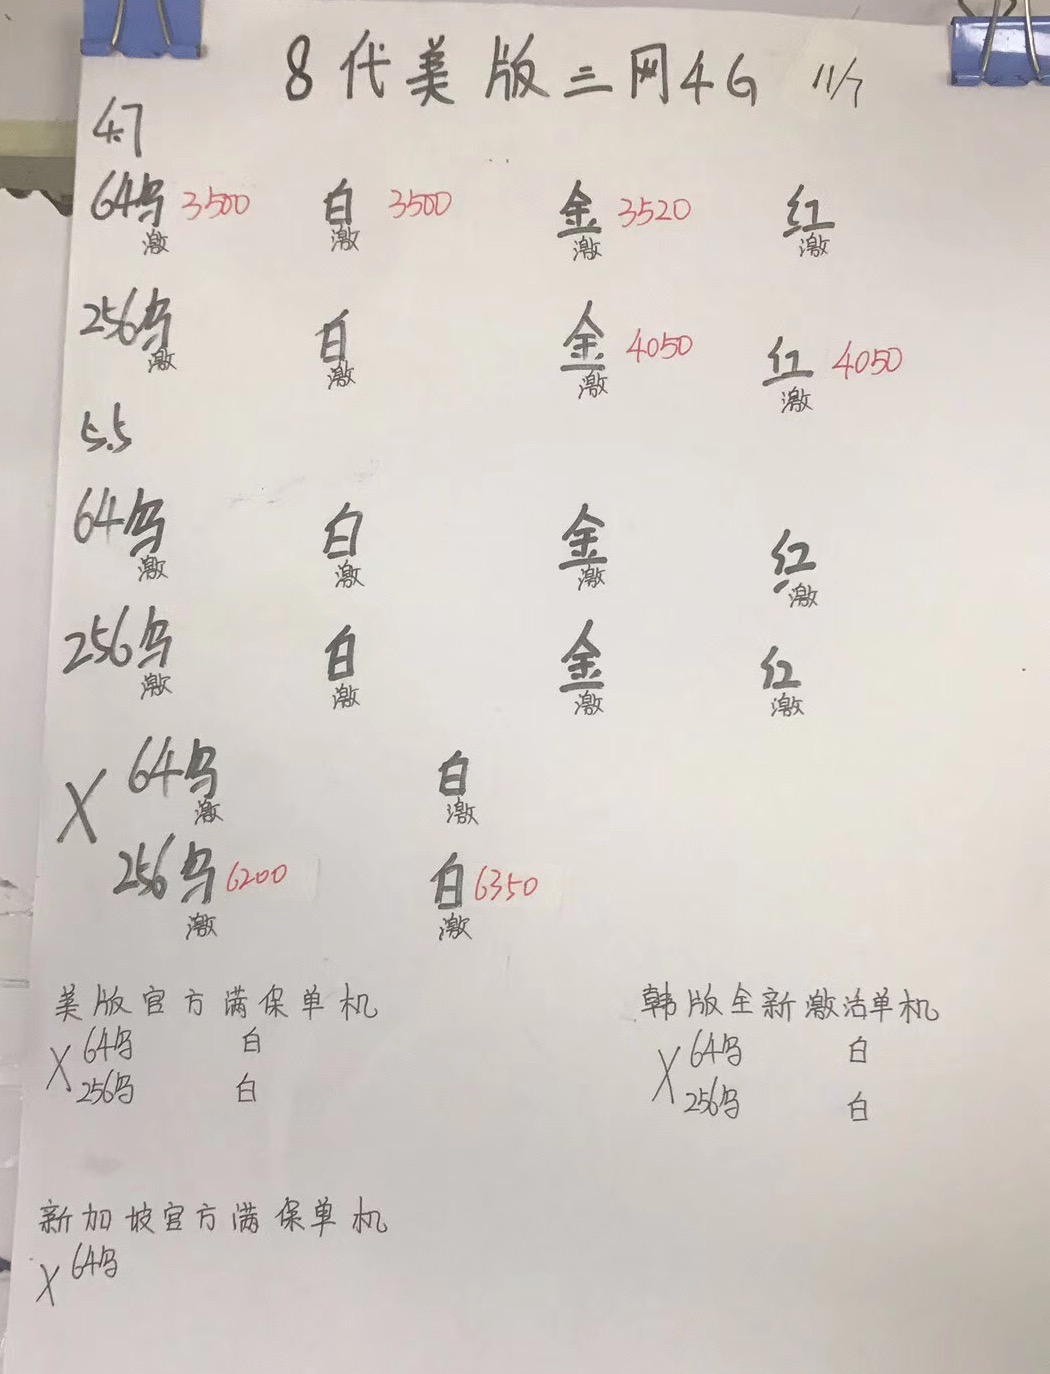 8代美版三网4G 11/7
4.7
64乌 3500 白 3500 金 3520 红
激 激 激 激
256乌 白 金 4050 红 4050
激 激 激 激
5.5
64乌 白 金 红
激 激 激 激
256乌 白 金 红
激 激 激 激
X 64乌 白
激 激
256乌 6200 白 6350
激 激
美版官方满保单机
X 64乌 白
256乌 白
韩版全新激活单机
X 64乌 白
256乌 白
新加坡官方满保单机
X 64乌